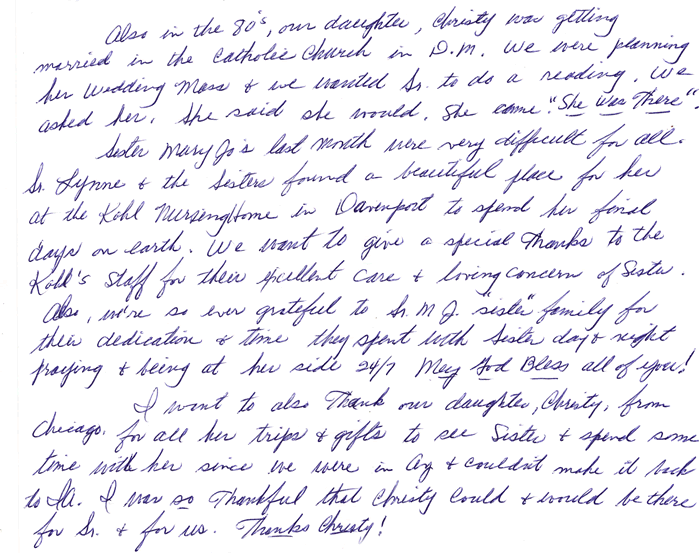 Also in the 80's, our daughter, Christy was getting
married in the Catholic Church in D.M. We were planning
her Wedding Mass & we wanted Sr. to do a reading. We
asked her. She said she would. She came. "She Was There".
Sister Mary Jo's last month were very difficult for all.
Sr. Lynne & the Sisters found a beautiful place for her
at the Kahl Nursing Home in Davenport to spend her final
days on earth. We want to give a special Thanks to the
Kahl's Staff for their excellent care & loving concern of Sister.
Also, we're so ever grateful to Sr. M J. "sister" family for
their dedication & time they spent with Sister day & night
praying & being at her side 24/7 May God Bless all of you!
I want to also Thank our daughter, Christy, from
Chicago, for all her trips & gifts to see Sister & spend some
time with her since we were in Az & couldn't make it back
to IA. I was so Thankful that Christy could & would be there
for Sr. & for us. Thanks Christy!